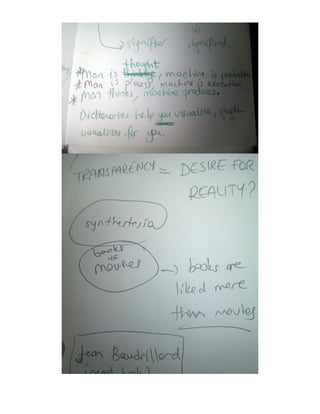 signifier signified
*Man is thought, machine is production
*Man is process, machine is execution
*Man thinks, machine produces.
Dictionaries help you visualize, google
visualizes for you.
TRANSPARENCY = DESIRE FOR
REALITY?
synthestesia
books
vs
movies → books are
liked more
than movies
Jean Baudrillard